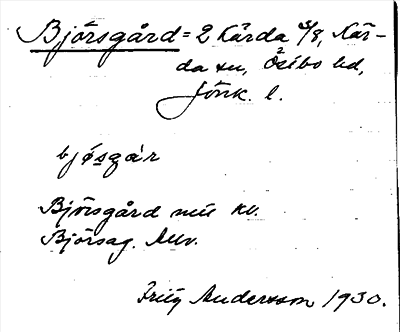 Björsgård = 2 Kärda 5/8, Kär-
da sn, Östbo hd,
Jönk. l.
bjǿsgár
Björsgård nu kv.
Björsag. Allv.
Fritz Andersson 1930.